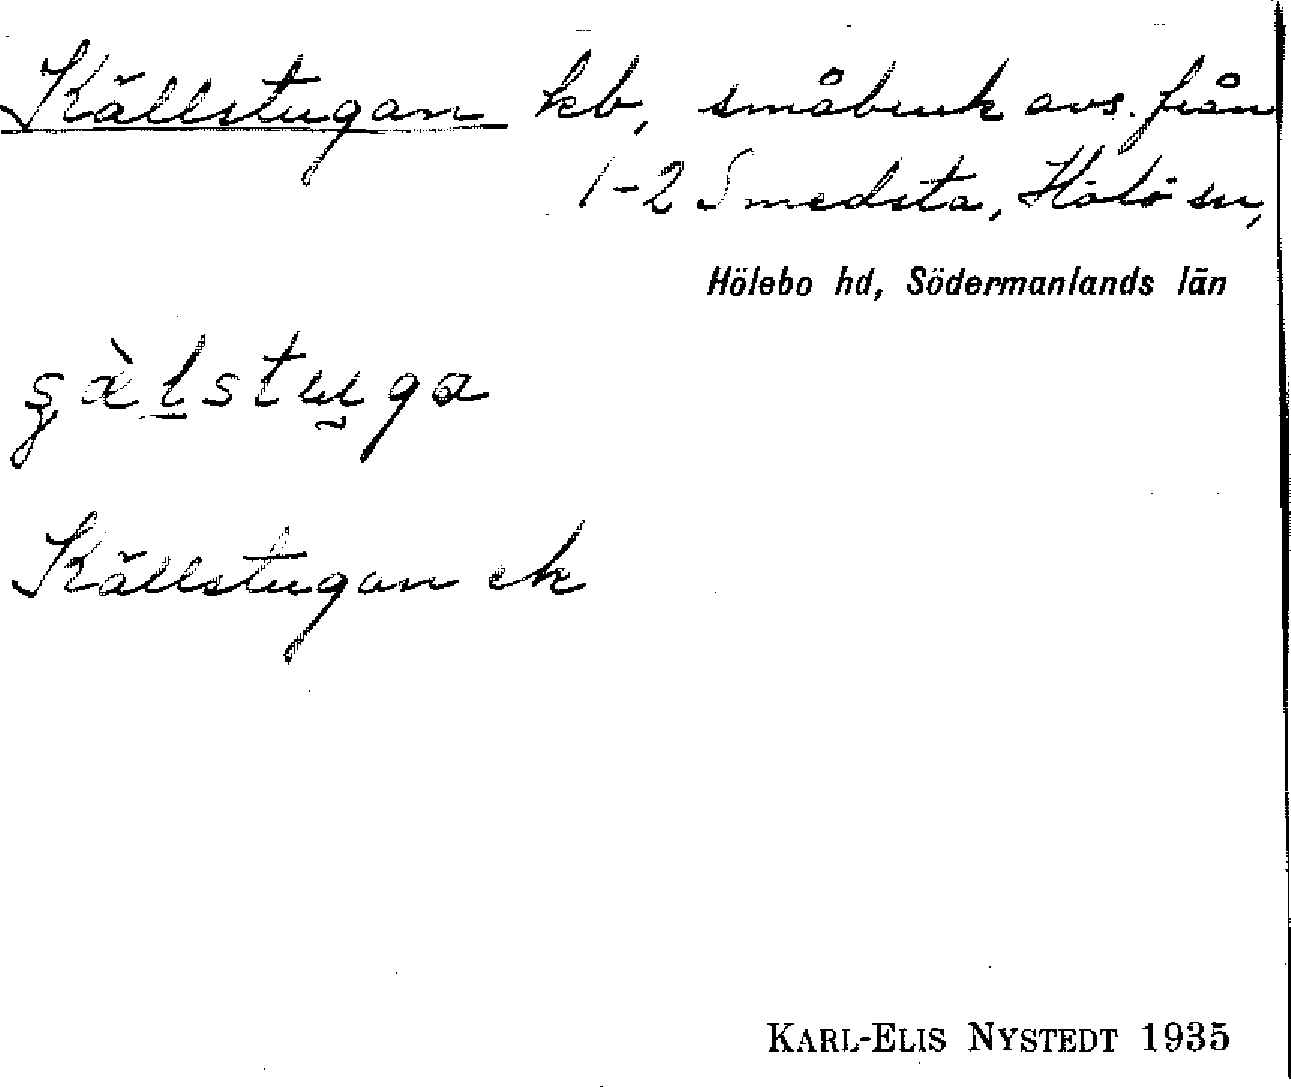 Källstugan kb, småbruk avs. från
1-2 Smedsta, Hölö sn,
Hölebo hd, Södermanlands län
Källstugan ek
KARL-ELIS NYSTEDT 1935